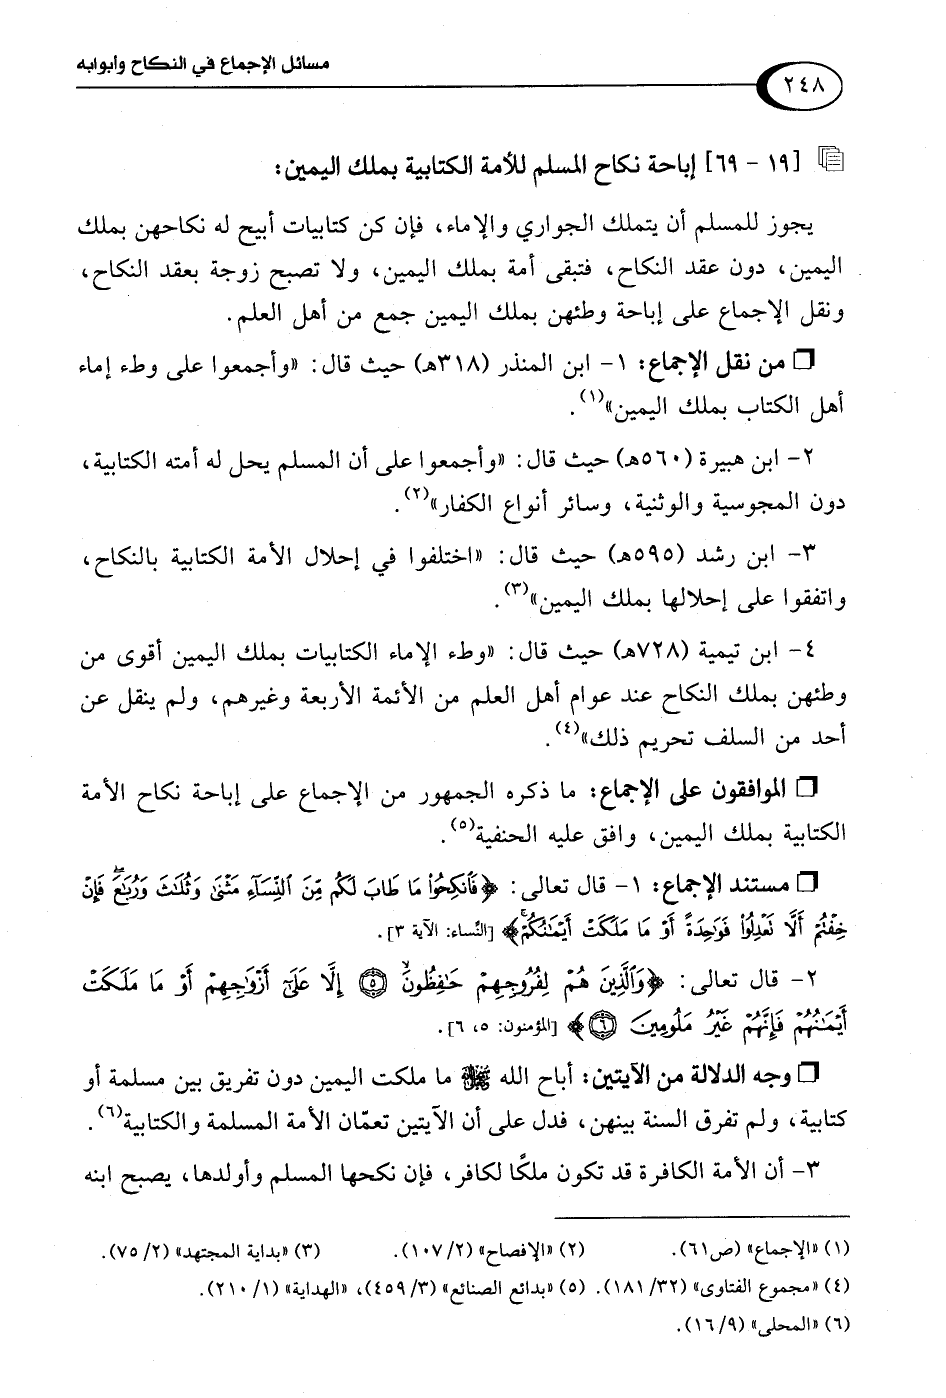 مسائل الإجماع في النكاح وأبوابه
٢٤٨
[١٩ - ٦٩] إباحة نكاح المسلم للأمة الكتابية بملك اليمين:
يجوز للمسلم أن يتملك الجواري والإماء، فإن كن كتابيات أبيح له نكاحهن بملك
اليمين، دون عقد النكاح، فتبقى أمة بملك اليمين، ولا تصبح زوجة بعقد النكاح،
ونقل الإجماع على إباحة وطئهن بملك اليمين جمع من أهل العلم.
❐ من نقل الإجماع: ١- ابن المنذر (٣١٨هـ) حيث قال: «وأجمعوا على وطء إماء
أهل الكتاب بملك اليمين»(١).
٢- ابن هبيرة (٥٦٠هـ) حيث قال: «وأجمعوا على أن المسلم يحل له أمته الكتابية،
دون المجوسية والوثنية، وسائر أنواع الكفار»(٢).
٣- ابن رشد (٥٩٥هـ) حيث قال: «اختلفوا في إحلال الأمة الكتابية بالنكاح،
واتفقوا على إحلالها بملك اليمين»(٣).
٤- ابن تيمية (٧٢٨هـ) حيث قال: «وطء الإماء الكتابيات بملك اليمين أقوى من
وطئهن بملك النكاح عند عوام أهل العلم من الأئمة الأربعة وغيرهم، ولم ينقل عن
أحد من السلف تحريم ذلك»(٤).
❐ الموافقون على الإجماع: ما ذكره الجمهور من الإجماع على إباحة نكاح الأمة
الكتابية بملك اليمين، وافق عليه الحنفية(٥).
❐ مستند الإجماع: ١- قال تعالى: ﴿فَٱنكِحُوا۟ مَا طَابَ لَكُم مِّنَ ٱلنِّسَآءِ مَثْنَىٰ وَثُلَٰثَ وَرُبَٰعَ ۖ فَإِنْ
خِفْتُمْ أَلَّا تَعْدِلُوا۟ فَوَٰحِدَةً أَوْ مَا مَلَكَتْ أَيْمَٰنُكُمْ ۚ﴾ [النّساء: الآية ٣].
٢- قال تعالى: ﴿وَٱلَّذِينَ هُمْ لِفُرُوجِهِمْ حَٰفِظُونَ ۙ ٥ إِلَّا عَلَىٰٓ أَزْوَٰجِهِمْ أَوْ مَا مَلَكَتْ
أَيْمَٰنُهُمْ فَإِنَّهُمْ غَيْرُ مَلُومِينَ ٦﴾ [المؤمنون: ٥، ٦].
❐ وجه الدلالة من الآيتين: أباح الله ما ملكت اليمين دون تفريق بين مسلمة أو
كتابية، ولم تفرق السنة بينهن، فدل على أن الآيتين تعمّان الأمة المسلمة والكتابية(٦).
٣- أن الأمة الكافرة قد تكون ملكًا لكافر، فإن نكحها المسلم وأولدها، يصبح ابنه
(١) «الإجماع» (ص٦١). (٢) «الإفصاح» (٢/ ١٠٧). (٣) «بداية المجتهد» (٢/ ٧٥).
(٤) «مجموع الفتاوى» (٣٢/ ١٨١). (٥) «بدائع الصنائع» (٣/ ٤٥٩)، «الهداية» (١/ ٢١٠).
(٦) «المحلى» (٩/ ١٦).